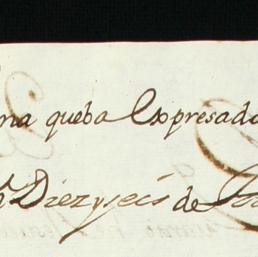 na queba Expresada
Diezyseis de